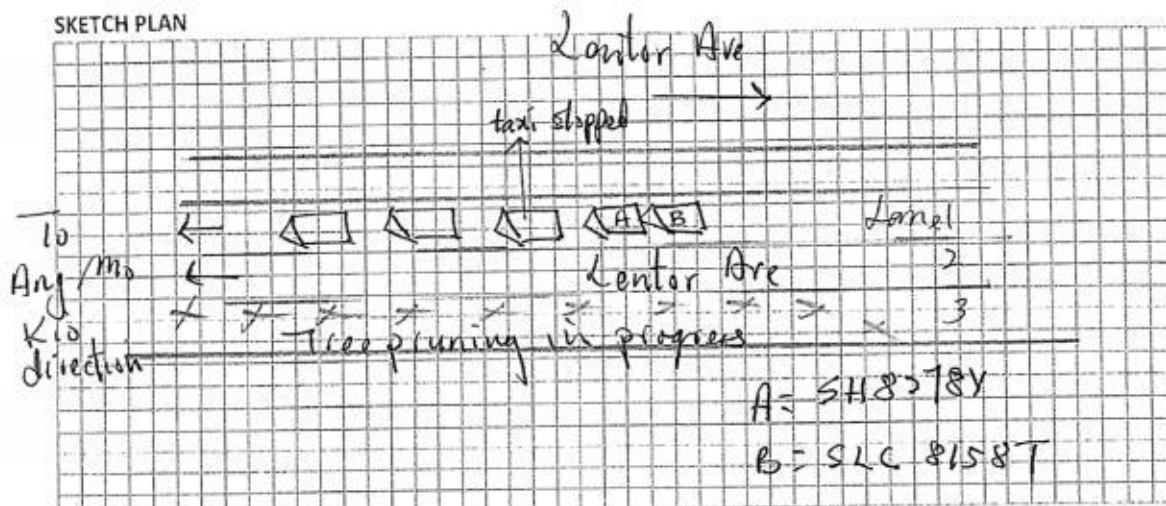 SKETCH PLAN
Lentor Ave
taxi stopped
To
Ang Mo
Kio
direction
A B
Lane 1
2
3
Lentor Ave
Tree pruning in progress
A =
B = SLC 8158T